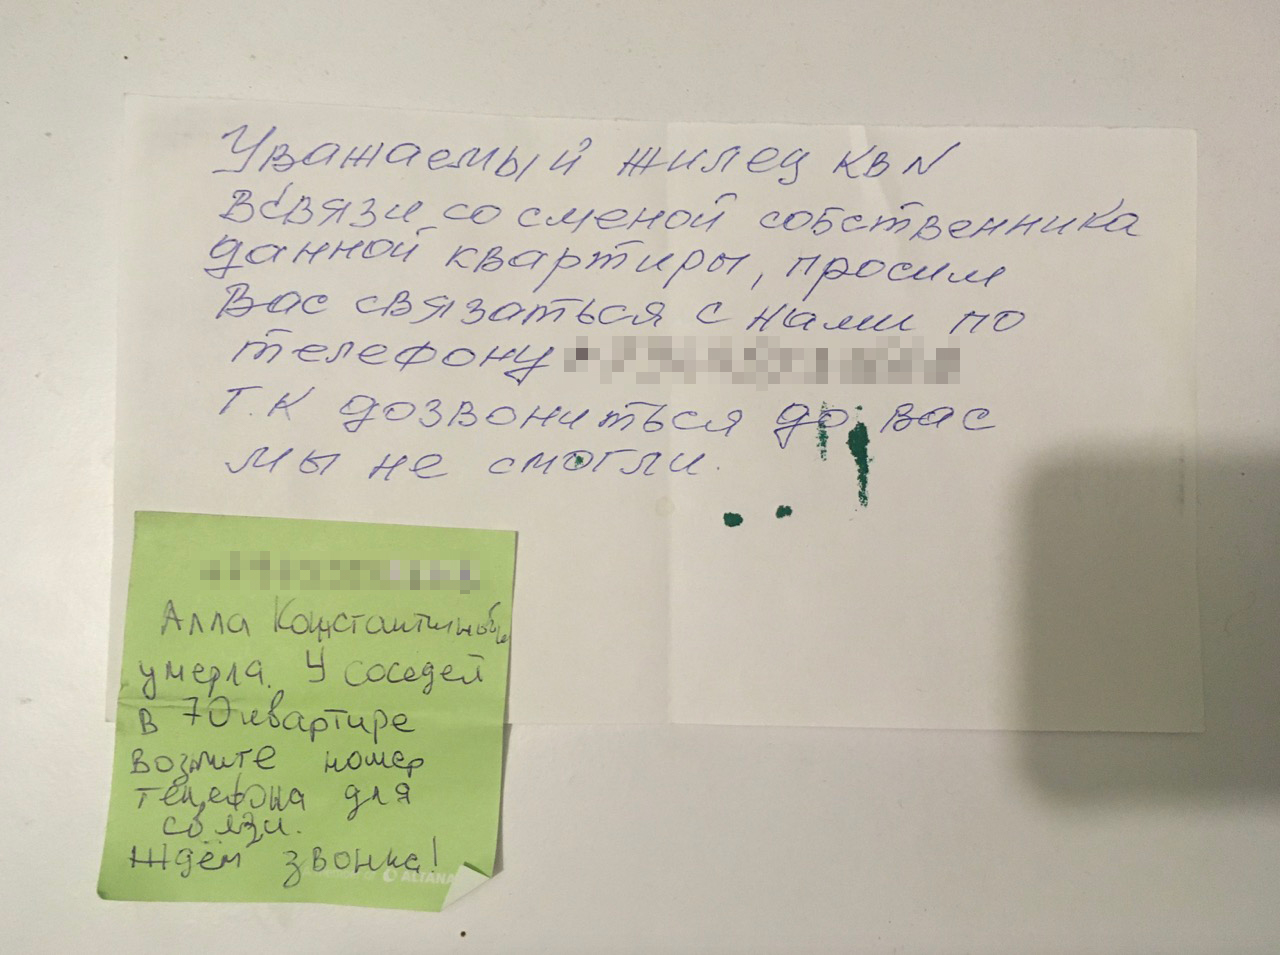 Уважаемый жилец кв N
В связи со сменой собственника
данной квартиры, просим
Вас связаться с нами по
телефону
т.к дозвониться до вас
мы не смогли.
Алла Константиновна
умерла. У соседей
в 70 квартире
возмите номер
телефона для
связи.
Ждём звонка!
ALTANA